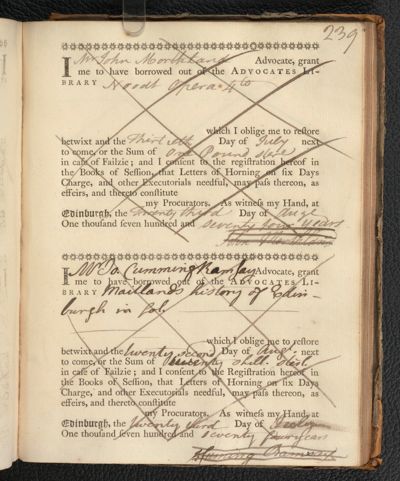 239
I Mr John Morthland Advocate, grant
me to have borrowed out of the ADVOCATES LI-
BRARY Noodt Opera 4to
which I oblige me to restore
betwixt and the thirtieth Day of July next
to come, or the Sum of One Pound ster
in case of Failzie; and I consent to the registration hereof in
the Books of Session, that Letters of Horning on six Days
Charge, and other Executorials needful, may pass thereon, as
effeirs, and thereto constitute
my Procurators. As witness my Hand, at
Edinburgh, the twenty third Day of
One thousand seven hundred and seventy four years
John Morthland
I Mr Jo. Cumming Ramsay Advocate, grant
me to have borrowed out of the ADVOCATES LI-
BRARY Maitlands history of Edin-
burgh in fol.
which I oblige me to restore
betwixt and the twenty second Day of Augt. next
to come, or the Sum of twenty shill. Sterl.
in case of Failzie; and I consent to the Registration hereof in
the Books of Session, that Letters of Horning on six Days
Charge, and other Executorials needful, may pass thereon, as
effeirs, and thereto constitute
my Procurators. As witness my Hand, at
Edinburgh, the twenty third Day of
One thousand seven hundred and seventy four years